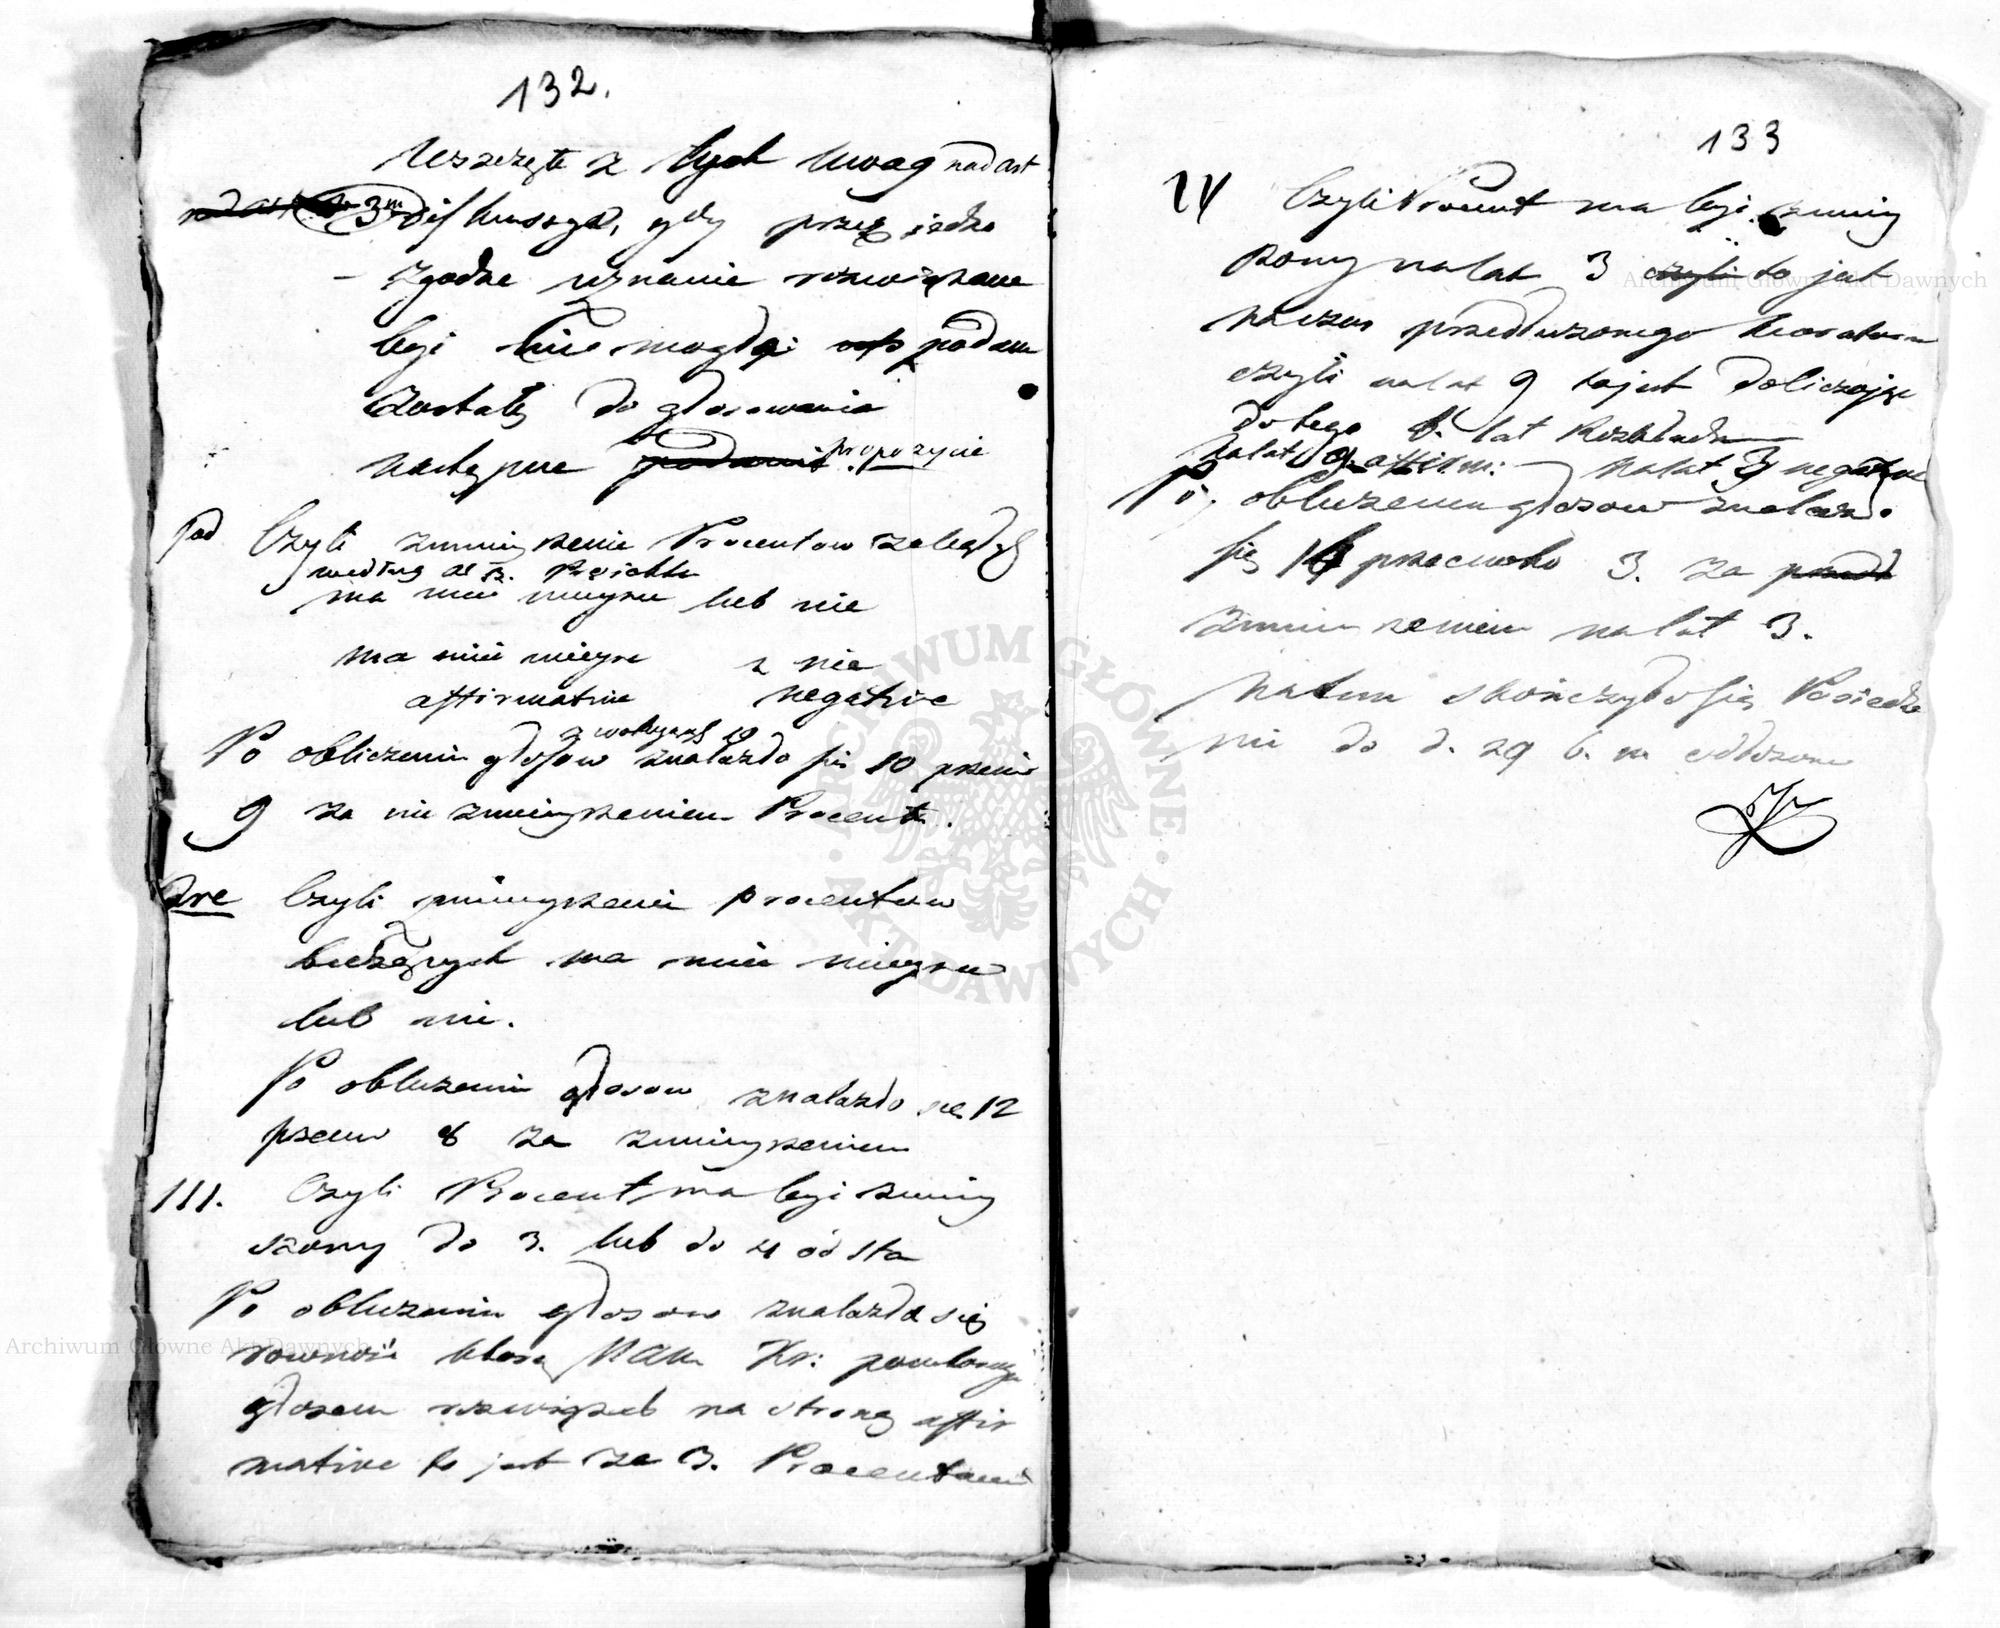 132.
Wszczęte z tych Uwag nad art
3m dyskussye, gdy przez jedno
zgodne uznanie rozwiązane
być nie mogły podane
zostały do głosowania
następne propozycie
Czyli zmnieyszenie Procentow zaległych
według
ma mieć mieysce lub nie
ma mieć mieysce nie
affirmative negative
z wotuiących 19
Po obliczeniu głosow znalazło się 10 przeciw
9 za nie zmnieyszeniem Procentu.
2re Czyli zmnieyszenie procentow
bieżących ma mieć mieysce
lub nie.
Po obliczeniu głosow znalazło się 12
przeciw 8 za zmnieyszeniem
III. Czyli Procent ma być zmniey
szony do 3. lub do 4 od sta
Po obliczeniu głosow znalazła się
rowność którą JW Kr: powtorny
głosem rozwiązał na stronę affir
mative to jest za 3. Procentami
133
Czyli Procent ma być zmniey
szony na lat 3 czyli to jest
na czas przedłużonego Moratorium
czyli na lat 9 to jest doliczając
do tego 6. lat Rozkładu
na lat 9 affirm: — na lat 3 negative
Po obliczeniu głosow znalazło
się 16 przeciwko 3. za
zmnieyszeniem na lat 3.
Na tem skończyło się Posiedze
nie do d. 29 b. m odłożone
Archiwum Główne Akt Dawnych
Archiwum Główne Akt Dawnych
ARCHIWUM GŁÓWNE AKT DAWNYCH